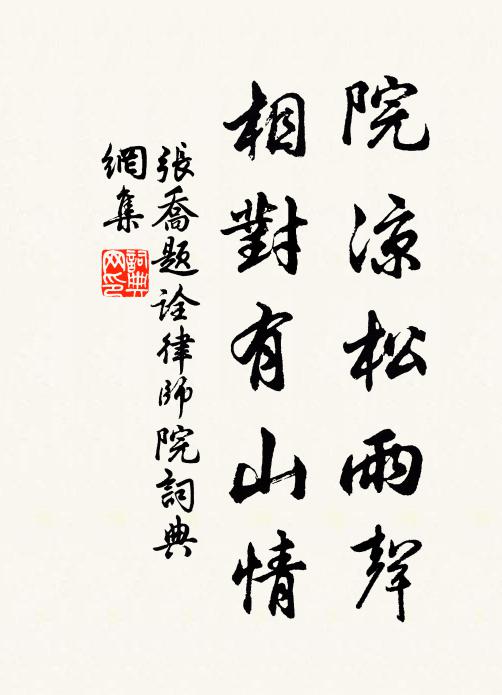 院凉松雨聲
相對有山情
張喬题詮律師院詞典
網集
詞典
网印